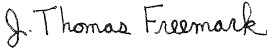 J. Thomas Freemark